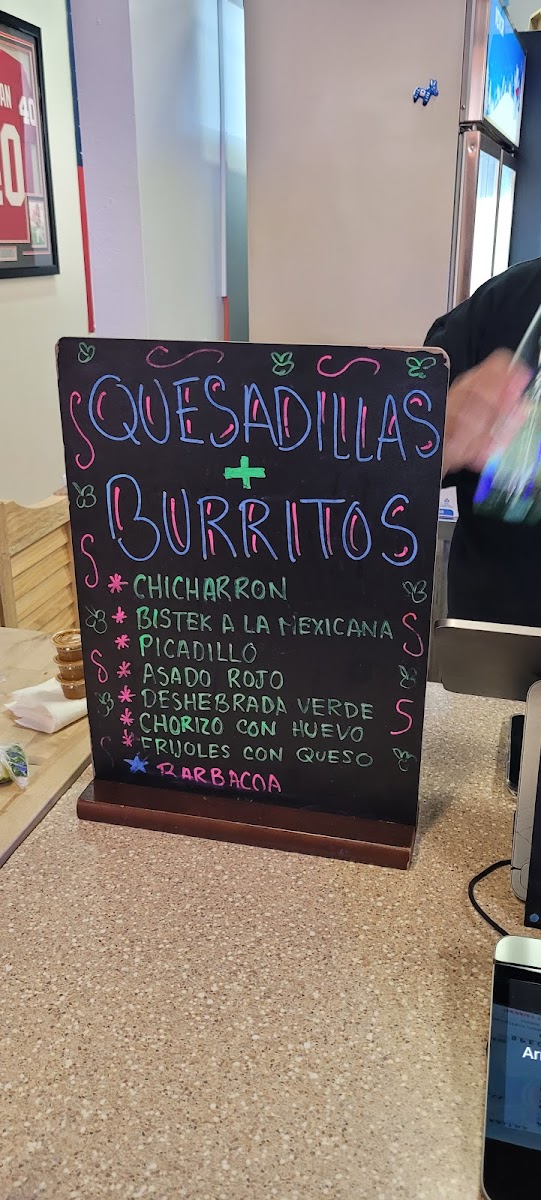 QUESADILLAS
+
BURRITOS
* CHICHARRON
* BISTEK A LA MEXICANA
* PICADILLO
* ASADO ROJO
* DESHEBRADA VERDE
* CHORIZO CON HUEVO
* FRIJOLES CON QUESO
★ BARBACOA
40